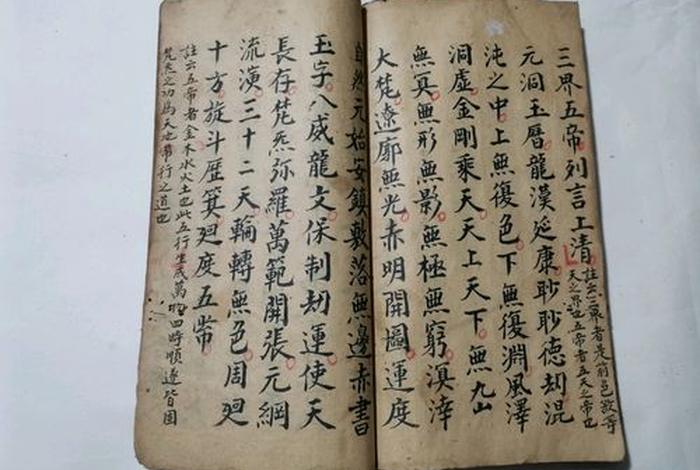 三界五帝列言上清
註云三界者是前色欲等
天之界也五帝者五天之帝也
元洞玉曆龍漢延康眇眇德劫混
沌之中上無復色下無復淵風澤
洞虛金剛乘天天上天下無幽
無冥無形無影無極無窮溟涬
大梵遼廓無光赤明開圖運度
自然元始安鎮敷落無邊赤書
玉字八威龍文保制劫運使天
長存梵炁弥羅萬範開張元綱
流演三十二天輪轉無色周廻
十方旋斗歷箕廻度五常
註云五帝者金木水火土也此五行生成萬物四時順遂皆因
梵炁之功為天地常行之道也